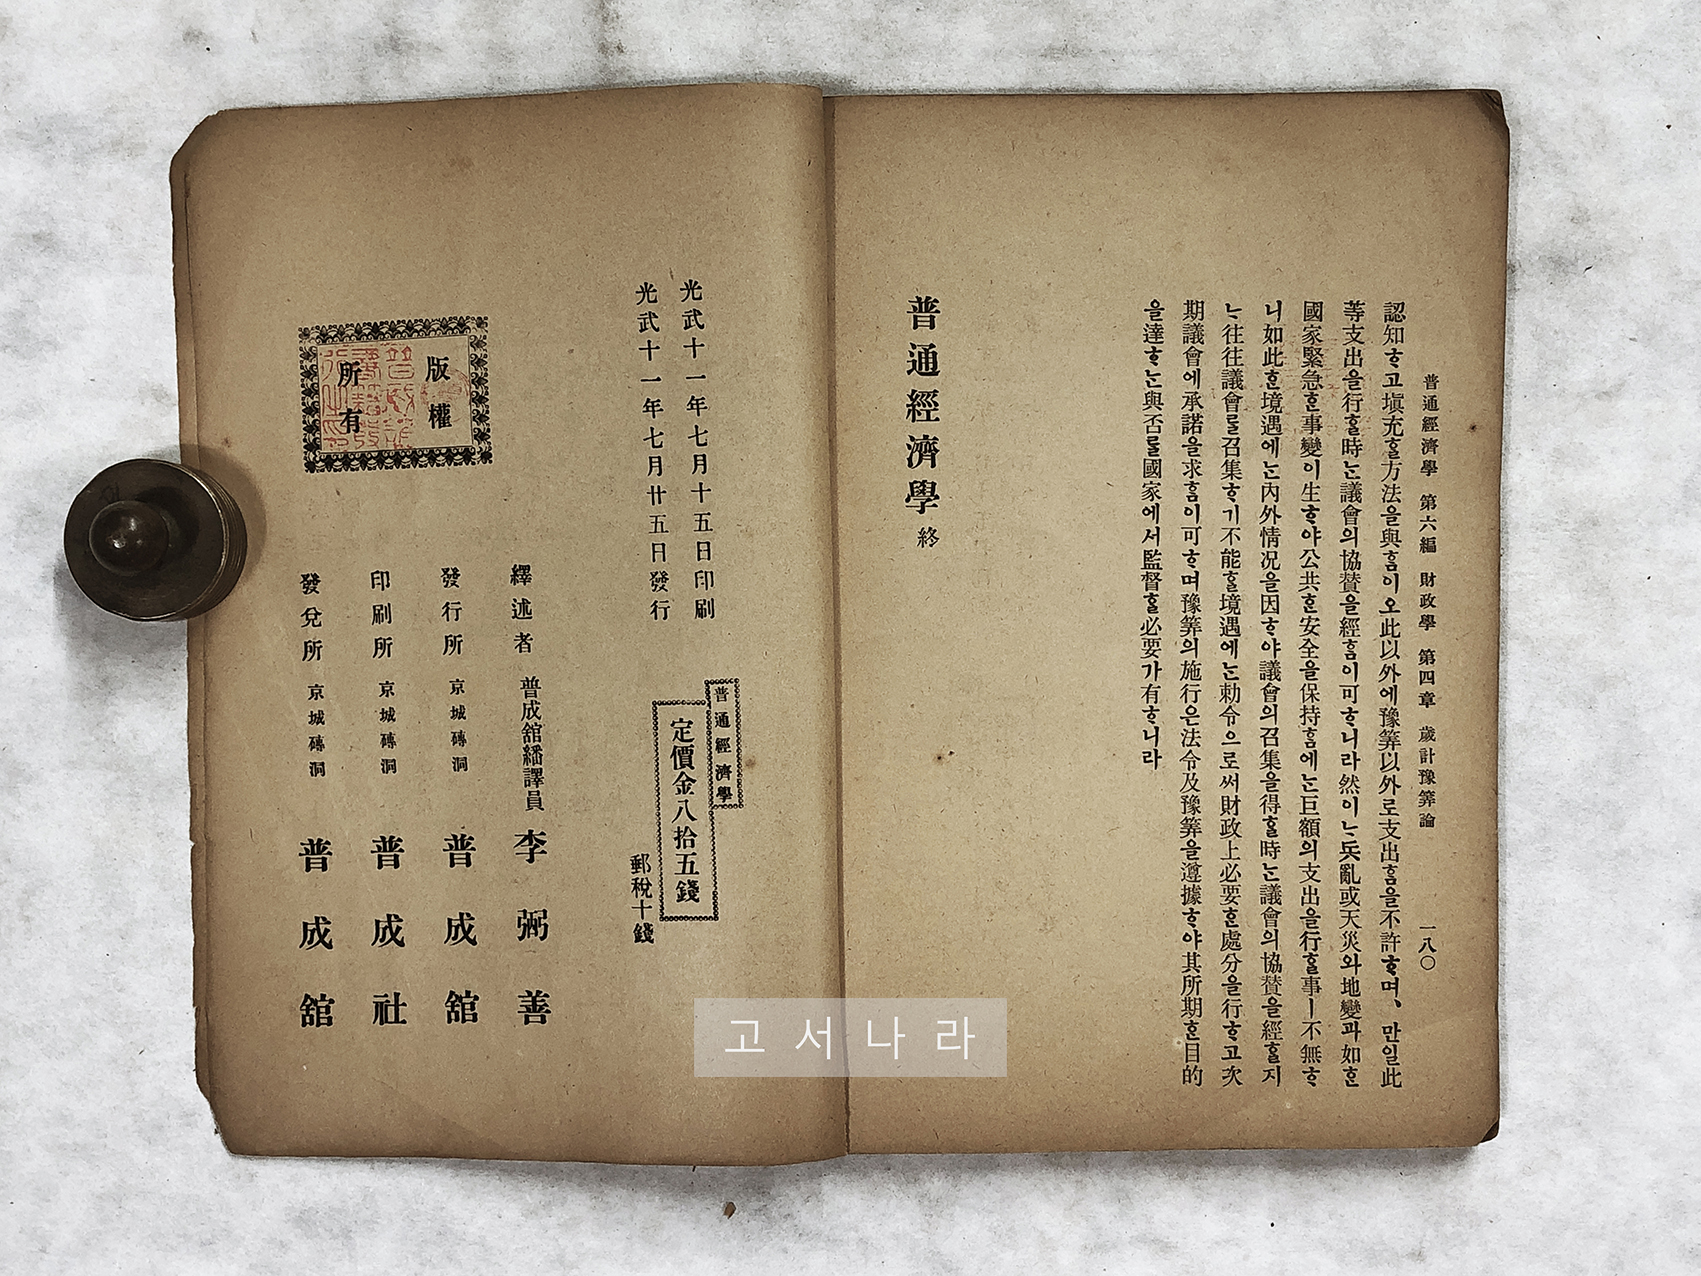 普通經濟學 第六編 財政學 第四章 歲計豫算論 一八〇
認知ᄒᆞ고塡充ᄒᆞᆯ方法을與ᄒᆞᆷ이오此以外에豫算以外로支出ᄒᆞᆷ을不許ᄒᆞ며、만일此
等支出을行ᄒᆞᆯ時ᄂᆞᆫ議會의協賛을經ᄒᆞᆷ이可ᄒᆞ니라然이ᄂᆞ兵亂或天災와地變과如ᄒᆞᆫ
國家緊急ᄒᆞᆫ事變이生ᄒᆞ야公共ᄒᆞᆫ安全을保持ᄒᆞᆷ에ᄂᆞᆫ巨額의支出을行ᄒᆞᆯ事ㅣ不無ᄒᆞ
니如此ᄒᆞᆫ境遇에ᄂᆞᆫ內外情况을因ᄒᆞ야議會의召集을得ᄒᆞᆯ時ᄂᆞᆫ議會의協賛을經ᄒᆞᆯ지
ᄂᆞ往往議會를召集ᄒᆞ기不能ᄒᆞᆯ境遇에ᄂᆞᆫ勅令으로써財政上必要ᄒᆞᆫ處分을行ᄒᆞ고次
期議會에承諾을求ᄒᆞᆷ이可ᄒᆞ며豫算의施行은法令及豫算을遵據ᄒᆞ야其所期ᄒᆞᆫ目的
을達ᄒᆞᄂᆞᆫ與否를國家에서監督ᄒᆞᆯ必要가有ᄒᆞ니라
普通經濟學 終
普通經濟學
定價金八拾五錢
郵稅十錢
光武十一年七月十五日印刷
光武十一年七月廿五日發行
繹述者 普成舘繙譯員 李弼善
發行所 京城磚洞 普成舘
印刷所 京城磚洞 普成社
發兌所 京城磚洞 普成舘
版權
所有
고서나라